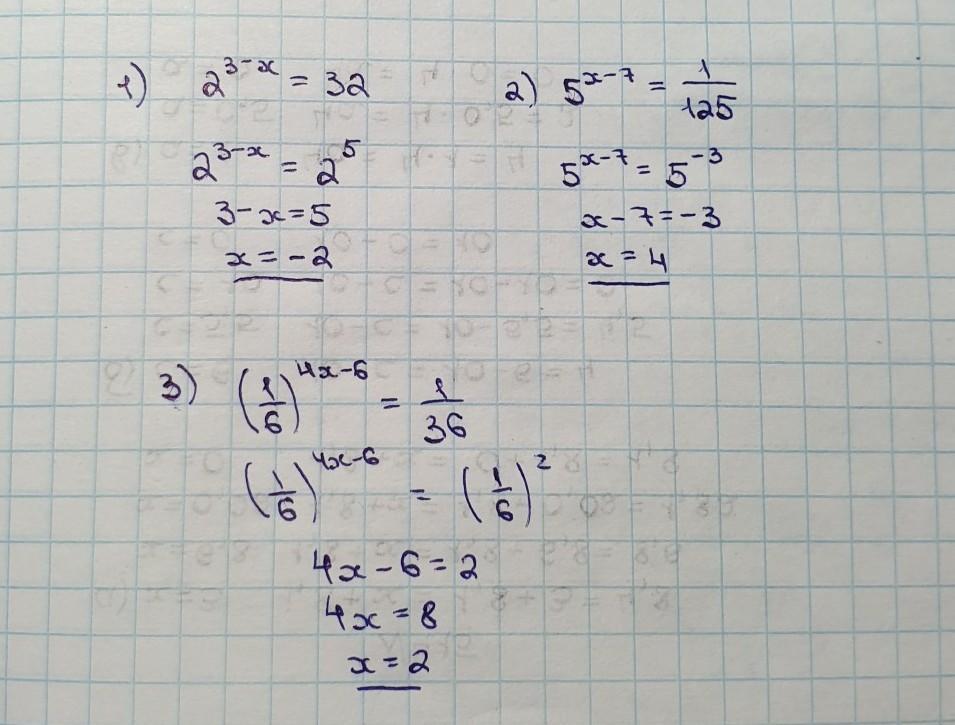 1) 2^(3-x) = 32
2^(3-x) = 2^5
3-x=5
x=-2
2) 5^(x-7) = 1/125
5^(x-7) = 5^(-3)
x-7=-3
x=4
3) (1/6)^(4x-6) = 1/36
(1/6)^(4x-6) = (1/6)^2
4x-6=2
4x=8
x=2